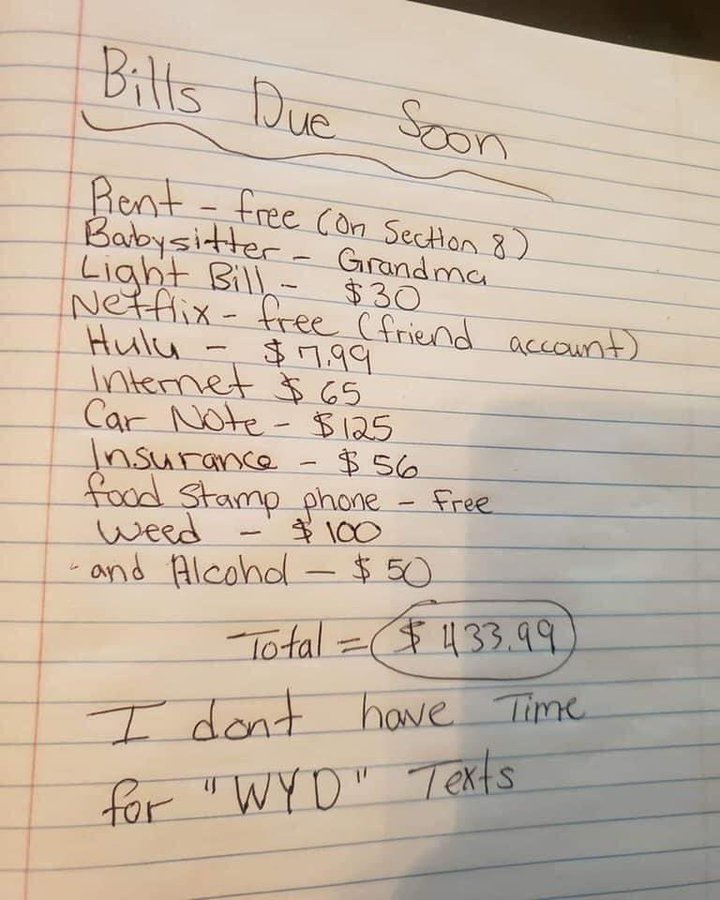 Bills Due Soon
Rent - free (on Section 8)
Babysitter - Grandma
Light Bill - $30
Netflix - free (friend account)
Hulu - $7.99
Internet $65
Car Note - $125
Insurance - $56
food stamp phone - Free
Weed - $100
and Alcohol - $50
Total = $433.99
I dont have Time
for "WYD" Texts